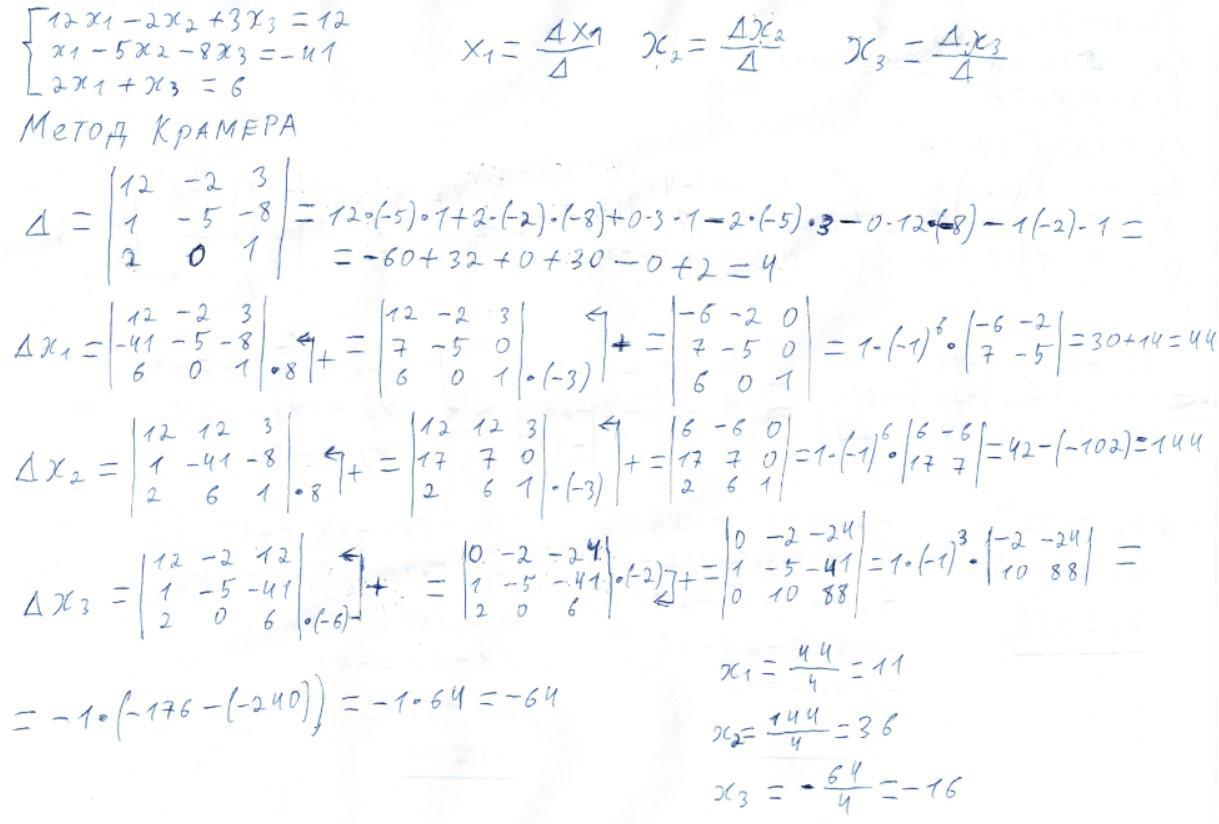 12x1 − 2x2 + 3x3 = 12
x1 − 5x2 − 8x3 = −41
2x1 + x3 = 6
x1 = Δx1/Δ x2 = Δx2/Δ x3 = Δx3/Δ
Метод Крамера
Δ = |12 −2 3; 1 −5 −8; 2 0 1| = 12·(−5)·1+2·(−2)·(−8)+0·3·1−2·(−5)·3−0·12·(−8)−1(−2)·1 =
= −60+32+0+30−0+2=4
Δx1 = |12 −2 3; −41 −5 −8; 6 0 1| ·8 + = |12 −2 3; 7 −5 0; 6 0 1| ·(−3) + = |−6 −2 0; 7 −5 0; 6 0 1| = 1·(−1)^6·|−6 −2; 7 −5| = 30+14=44
Δx2 = |12 12 3; 1 −41 −8; 2 6 1| ·8 + = |12 12 3; 17 7 0; 2 6 1| ·(−3) + = |6 −6 0; 17 7 0; 2 6 1| = 1·(−1)^6·|6 −6; 17 7| = 42−(−102)=144
Δx3 = |12 −2 12; 1 −5 −41; 2 0 6| ·(−6) + = |0 −2 −24; 1 −5 −41; 2 0 6| ·(−2) + = |0 −2 −24; 1 −5 −41; 0 10 88| = 1·(−1)^3·|−2 −24; 10 88| =
= −1·(−176−(−240)) = −1·64 = −64
x1 = 44/4 = 11
x2 = 144/4 = 36
x3 = −64/4 = −16